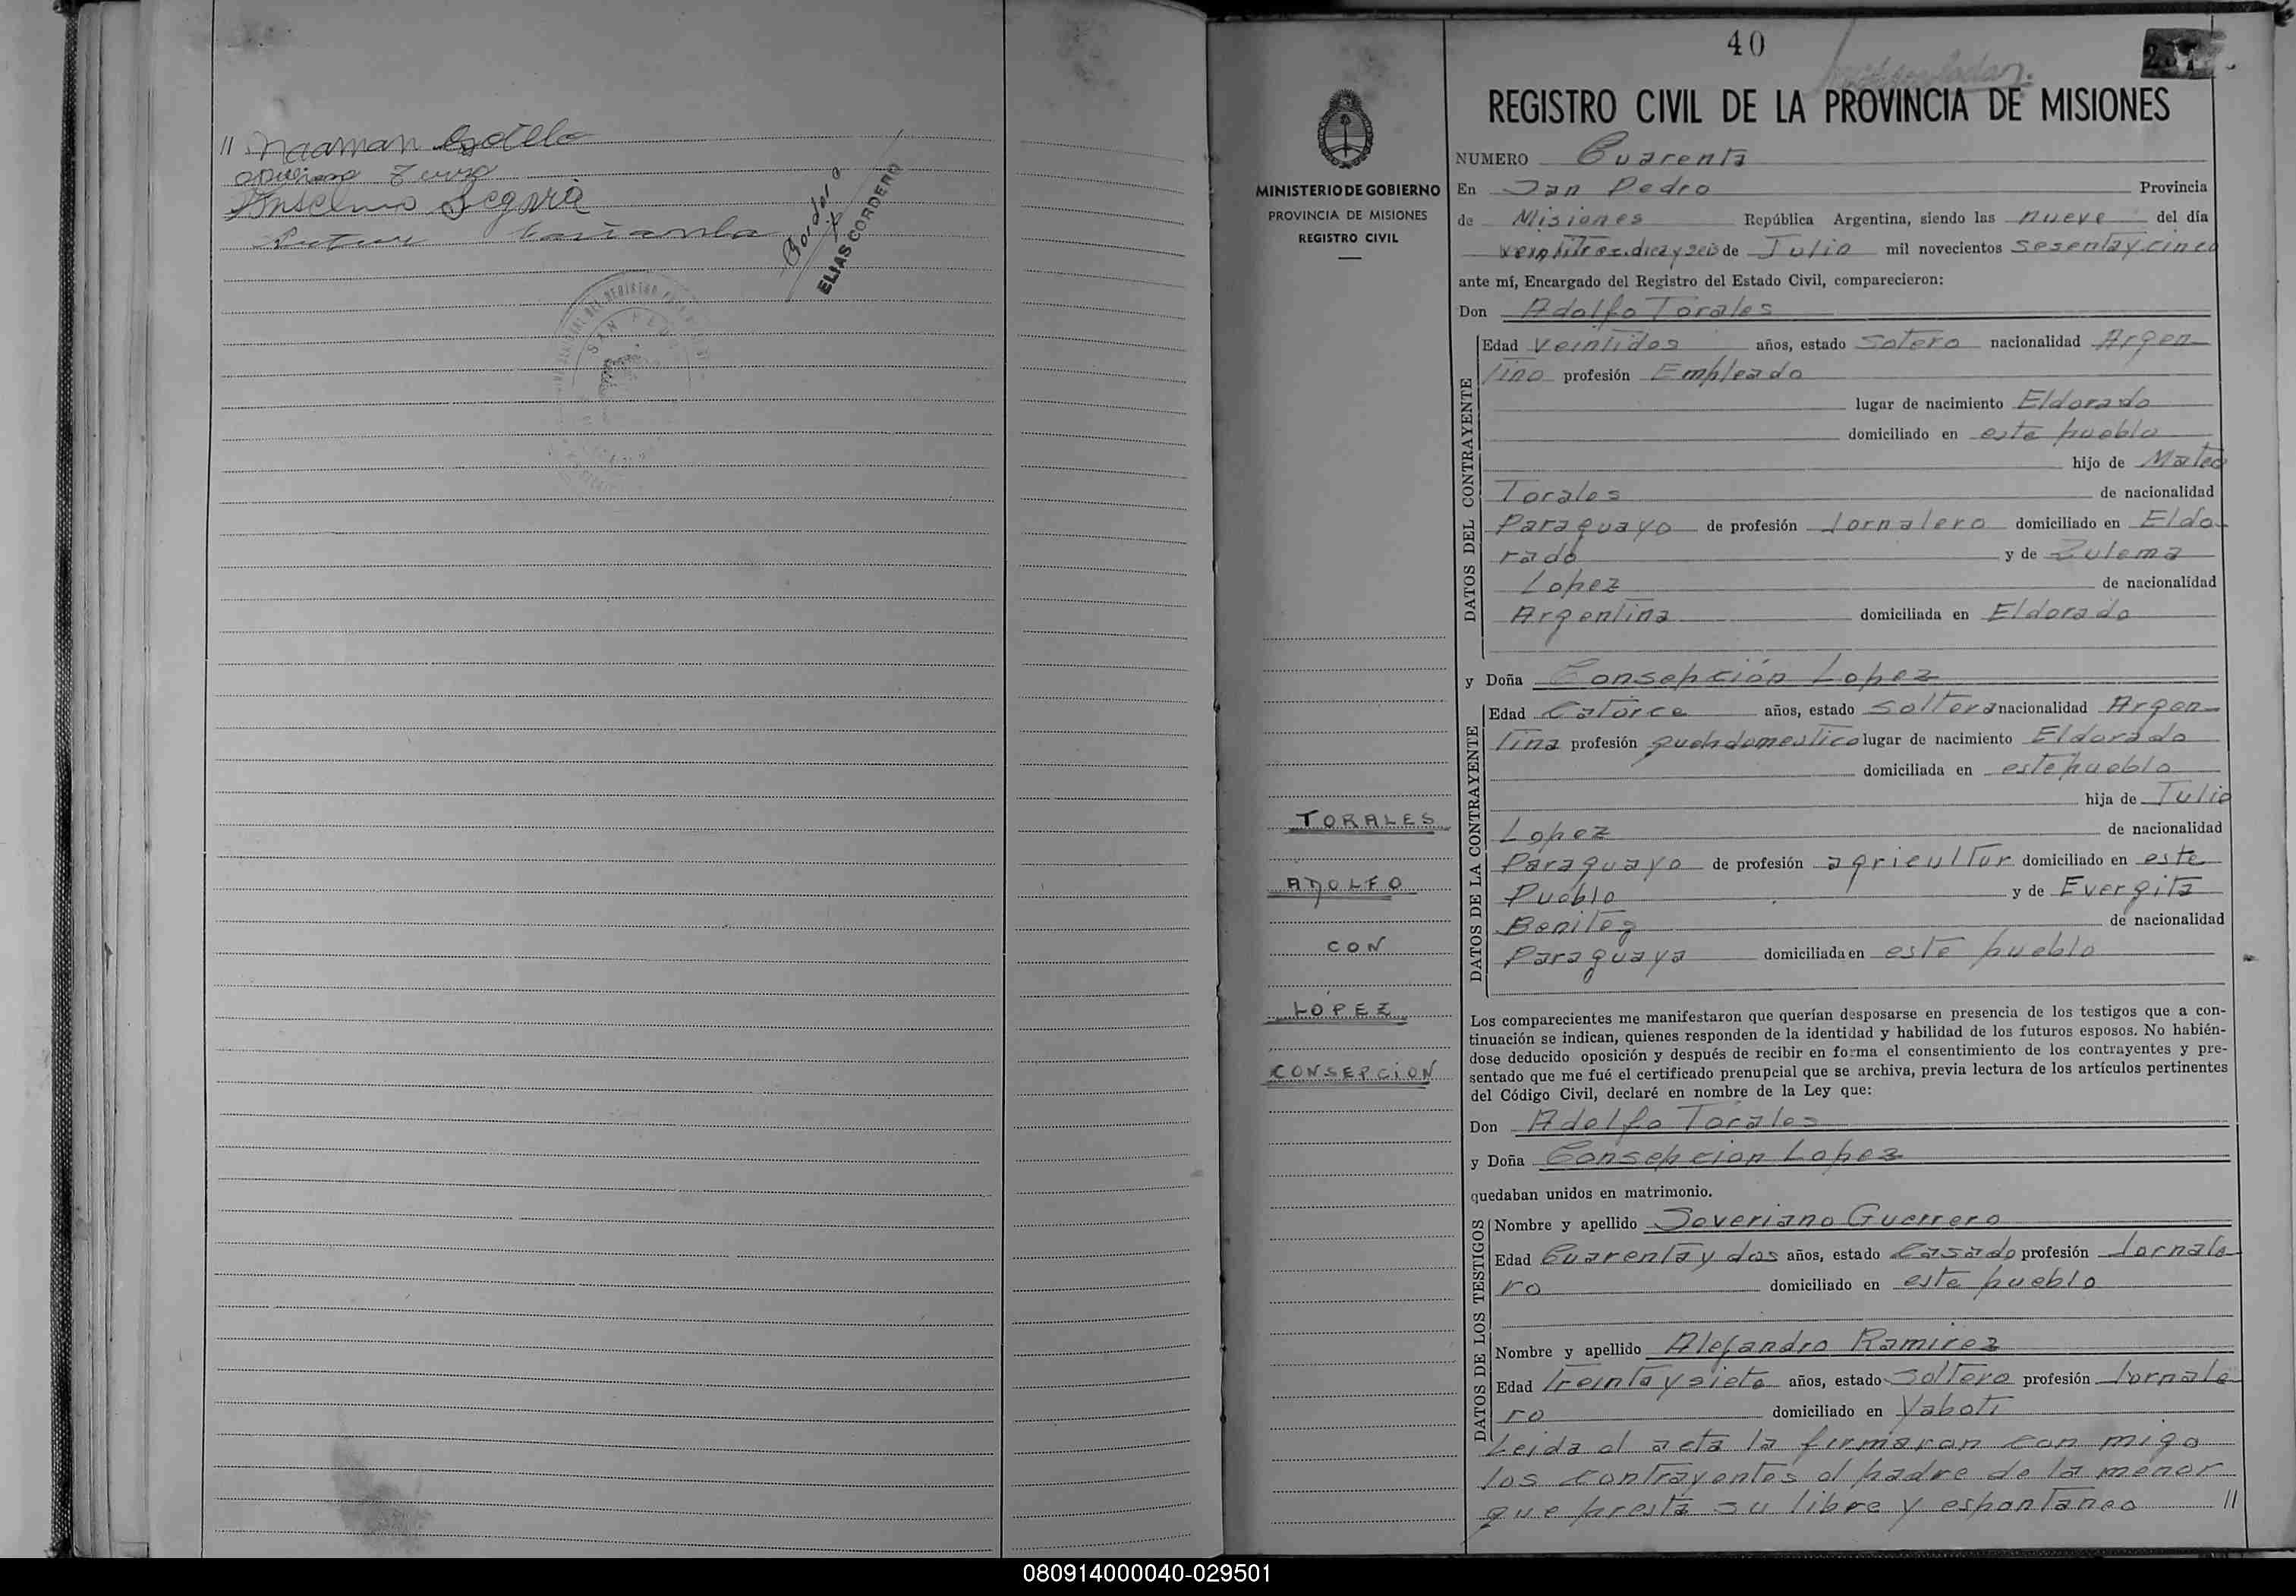 //
Anselmo Segovia
Cordero
ELIAS CORDERO
SAN PEDRO
40
REGISTRO CIVIL DE LA PROVINCIA DE MISIONES
MINISTERIO DE GOBIERNO
PROVINCIA DE MISIONES
REGISTRO CIVIL
TORALES
ADOLFO
CON
LOPEZ
CONSEPCION
NUMERO Cuarenta
En San Pedro Provincia
de Misiones República Argentina, siendo las nueve del día
diez y seis de Julio mil novecientos sesenta y cinco
ante mí, Encargado del Registro del Estado Civil, comparecieron:
Don Adolfo Torales
DATOS DEL CONTRAYENTE
Edad veintidos años, estado Sotero nacionalidad Argen-
tino profesión Empleado
lugar de nacimiento Eldorado
domiciliado en este pueblo
hijo de Mateo
Torales de nacionalidad
Paraguayo de profesión Jornalero domiciliado en Eldo-
rado y de Zulema
Lopez de nacionalidad
Argentina domiciliada en Eldorado
y Doña Consepción Lopez
DATOS DE LA CONTRAYENTE
Edad Catorce años, estado Soltera nacionalidad Argen-
tina profesión queh domestico lugar de nacimiento Eldorado
domiciliada en este pueblo
hija de Julio
Lopez de nacionalidad
Paraguayo de profesión agricultur domiciliado en este
Pueblo y de Evergita
Benitez de nacionalidad
Paraguaya domiciliada en este pueblo
Los comparecientes me manifestaron que querían desposarse en presencia de los testigos que a con-
tinuación se indican, quienes responden de la identidad y habilidad de los futuros esposos. No habién-
dose deducido oposición y después de recibir en forma el consentimiento de los contrayentes y pre-
sentado que me fué el certificado prenupcial que se archiva, previa lectura de los artículos pertinentes
del Código Civil, declaré en nombre de la Ley que:
Don Adolfo Torales
y Doña Consepcion Lopez
quedaban unidos en matrimonio.
DATOS DE LOS TESTIGOS
Nombre y apellido Severiano Guerrero
Edad Cuarenta y dos años, estado Casado profesión Jornale-
ro domiciliado en este pueblo
Nombre y apellido Alejandro Ramirez
Edad treinta y siete años, estado Soltero profesión Jornale
ro domiciliado en Yaboti
Leida el acta la firmaron con migo
los contrayentes el padre de la menor
que presta su libre y espontaneo //
080914000040-029501